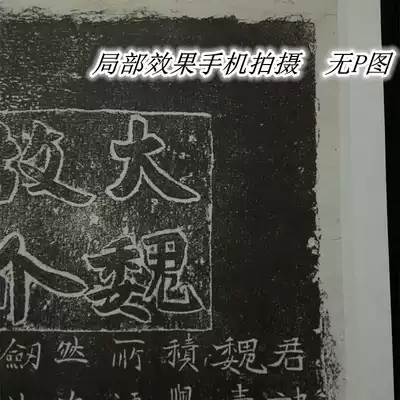 局部效果手机拍摄 无P图
大魏
故介
君
魏
積
所
然